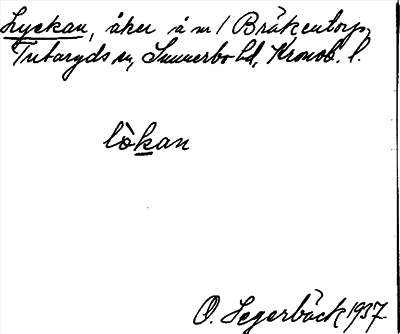 Lyckan, åker å m/ Bråkentorp,
Tutaryds sn, Sunnerbo hd, Kronob. l.
lòkan
O. Segerbäck 1937